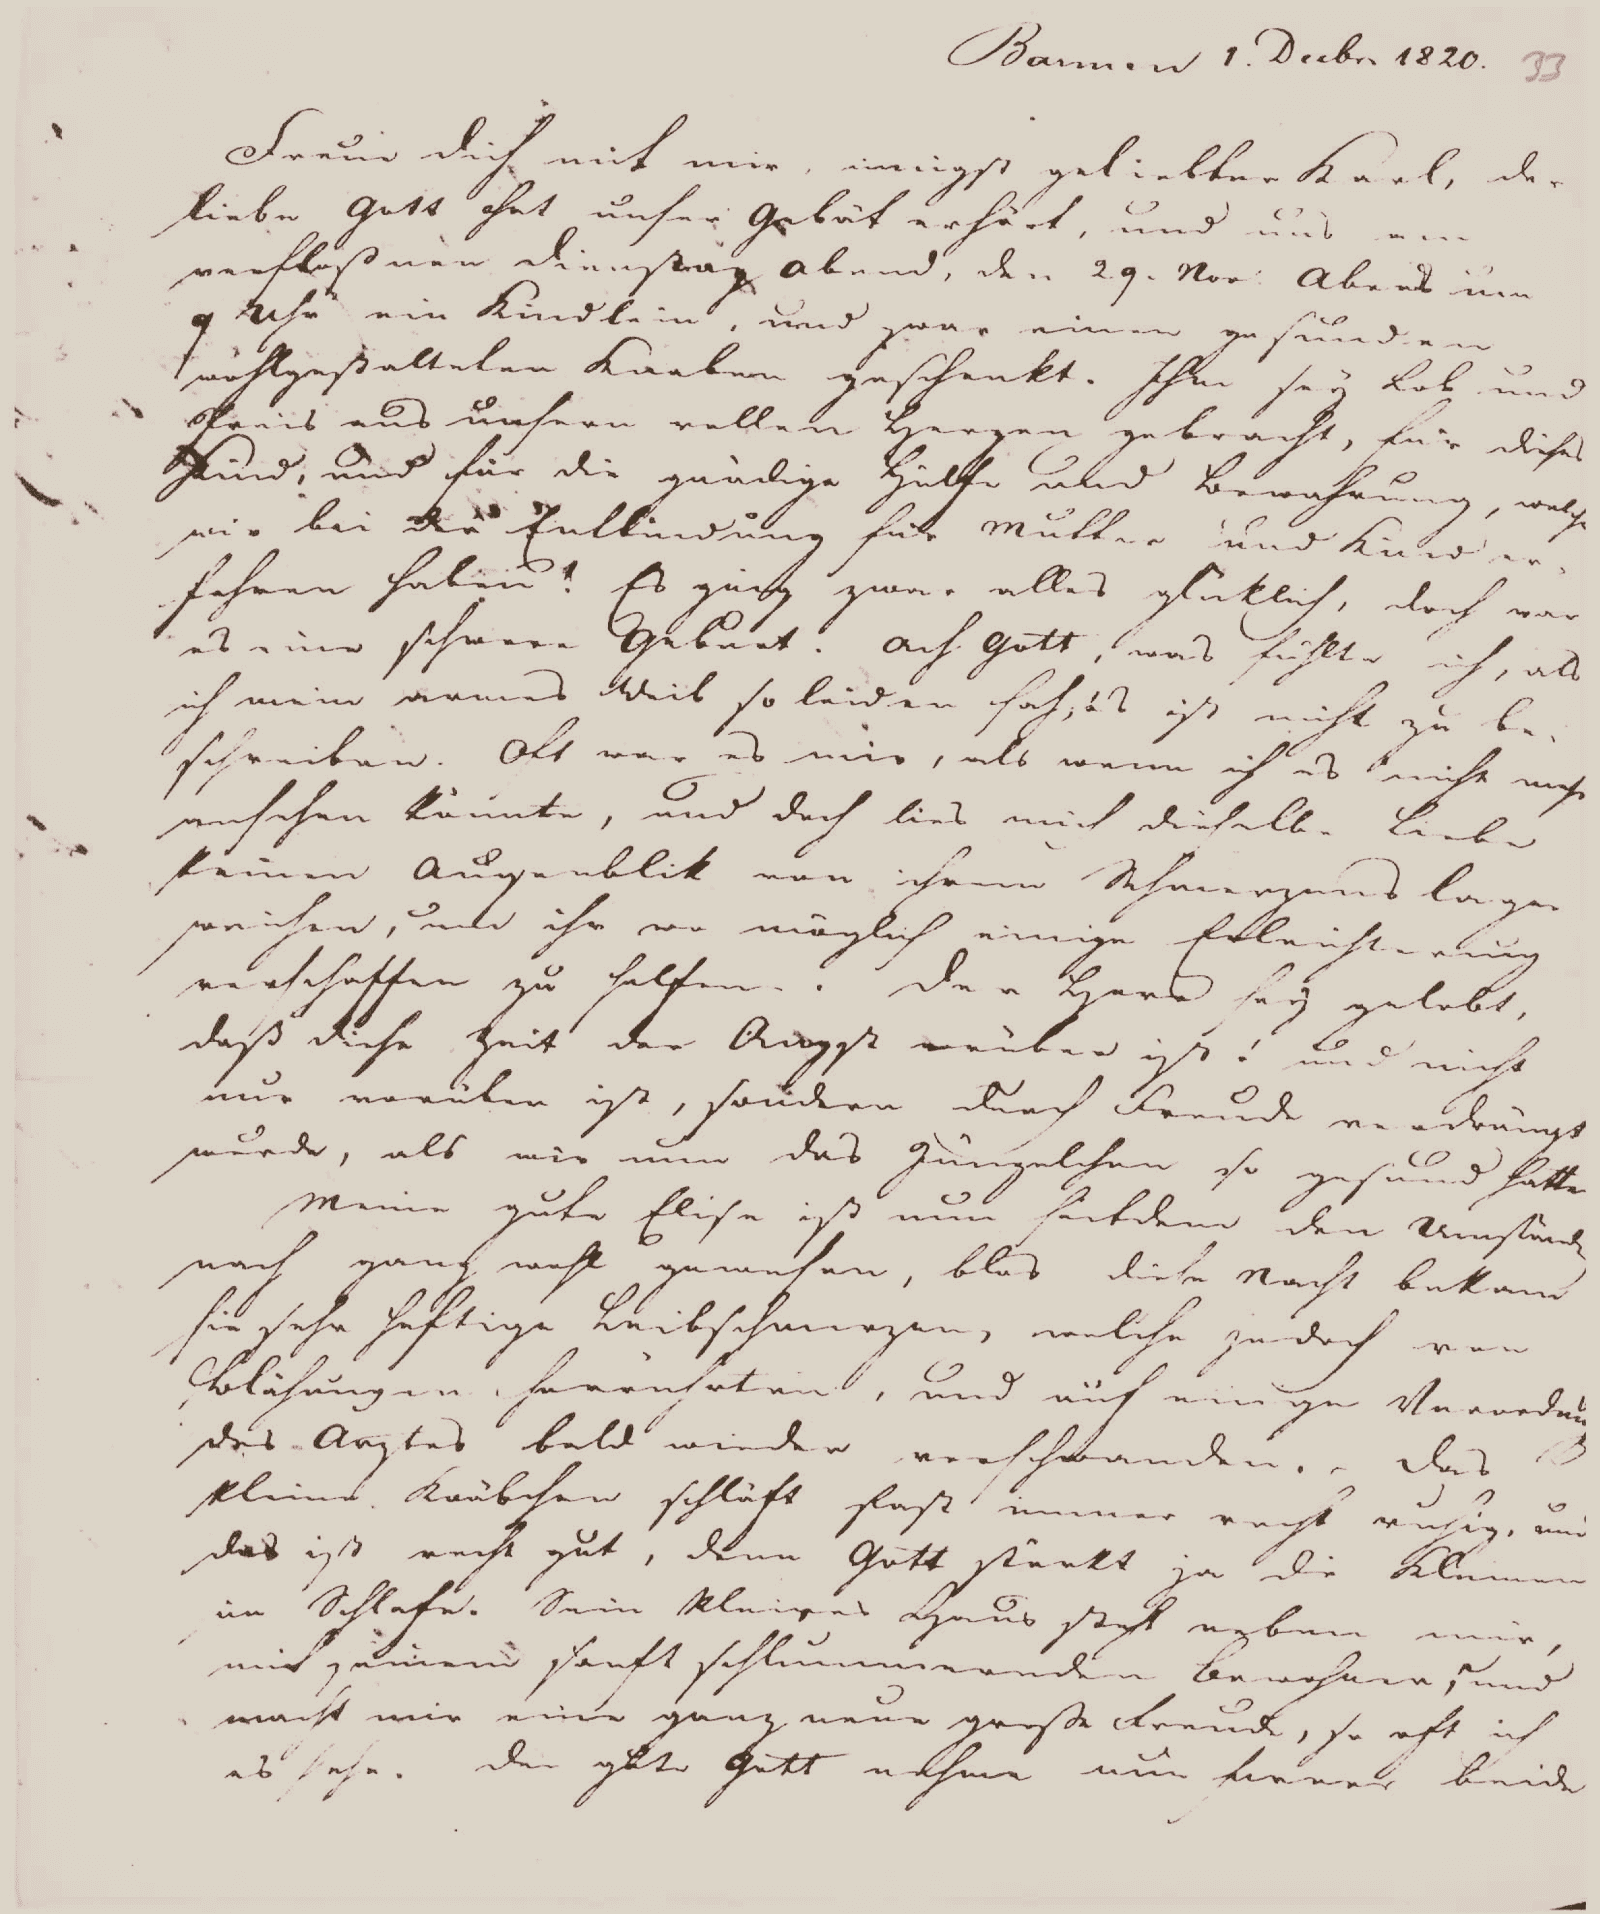 Barmen 1. Decbr. 1820. 33
Freue dich mit mir, innigst geliebter Karl, der
liebe Gott hat unser Gebät erhört, und uns am
verfloßnen Dienstag Abend, den 29. Nov: Abends um
9 Uhr ein Kindlein, und zwar einen gesunden
wohlgestalteten Knaben geschenkt. Ihm sey Lob und
Preis aus unsern vollen Herzen gebracht, für dieses
Kind, und für die gnädige Hülfe und Bewahrung, welche
wir bei der Entbindung für Mutter und Kind er-
fahren haben! Es ging zwar alles glüklich, doch war
es eine schwere Geburt. Ach Gott, was fühlte ich, als
ich mein armes Weib so leiden sah, es ist nicht zu be-
schreiben. Oft war es mir, als wenn ich es nicht mehr
ansehen könnte, und doch lies mich dieselbe Liebe
keinen Augenblik von ihrem Schmerzens lager
weichen, um ihr wo möglich einige Erleichterung
verschaffen zu helfen. Der Herr sey gelobt,
daß diese Zeit der Angst vorüber ist! und nicht
nur vorüber ist, sondern durch Freude verdrängt
wurde, als wir nun das Jüngelchen so gesund hatten
Meine gute Elise ist nun seitdem den Umständen
nach ganz wohl gewesen, blos diese Nacht bekam
sie sehr heftige Leibschmerzen, welche jedoch von
Blähungen herrührten, und auf einige Verordnung
des Arztes bald wieder verschwanden. - Das
kleine Knäbchen schläft fast immer recht ruhig, und
das ist recht gut, denn Gott stärkt ja die Kleinen
im Schlafe. Sein kleines Haus steht neben mir,
mit seinem sanft schlummernden Bewohner, und
macht mir eine ganz neue große Freude, so oft ich
es sehe. Der gute Gott nehme nun ferner beide